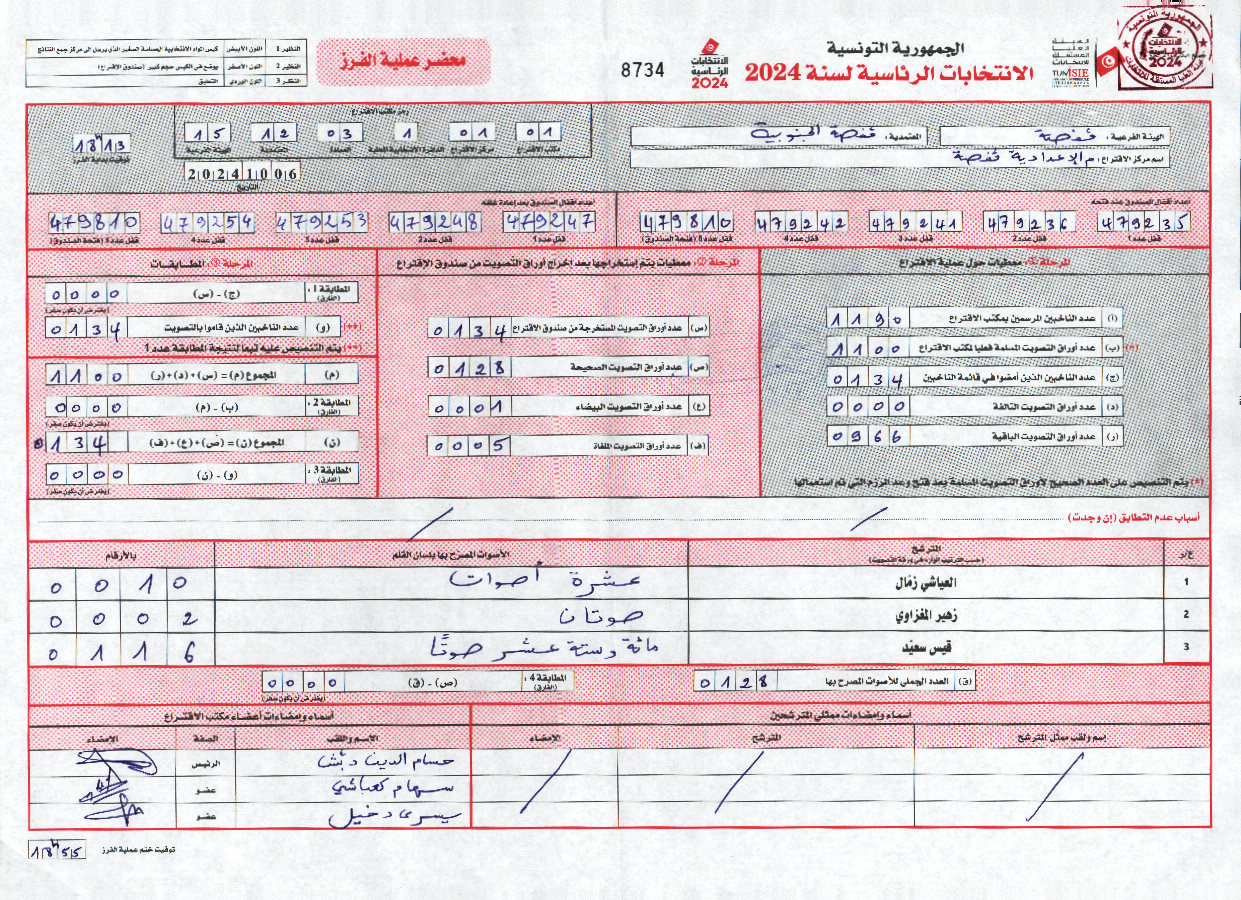 الجمهورية التونسية
الانتخابات الرئاسية لسنة 2024
الهيئة العليا المستقلة للانتخابات
TUNISIE
الانتخابات الرئاسية 2024
8734
محضر عملية الفرز
النظير 1 اللون الأبيض كيس المواد الانتخابية الحساسة الصغير الذي يرسل الى مركز جمع النتائج
النظير 2 اللون الأصفر يوضع في الكيس حجم كبير (صندوق الاقتراع)
النظير 3 اللون الوردي التعليق
الهيئة الفرعية : قفصة
المعتمدية : قفصة الجنوبية
اسم مركز الاقتراع : م الإعدادية قفصة
رمز مكتب الاقتراع
01 01 1 03 12 15
مكتب الاقتراع مركز الاقتراع الدائرة الانتخابية البلدية العمادة المعتمدية الهيئة الفرعية
18 13
توقيت بداية الفرز
20241006
التاريخ
أعداد أقفال الصندوق عند فتحه
479235 479236 479241 479242 479810
قفل عدد 1 قفل عدد 2 قفل عدد 3 قفل عدد 4 قفل عدد 5 (فتحة الصندوق)
أعداد أقفال الصندوق بعد إعادة غلقه
479247 479248 479253 479254 479810
قفل عدد 1 قفل عدد 2 قفل عدد 3 قفل عدد 4 قفل عدد 5 (فتحة الصندوق)
المرحلة ①: معطيات حول عملية الاقتراع
(أ) عدد الناخبين المرسمين بمكتب الاقتراع 1190
(*) (ب) عدد أوراق التصويت المسلمة فعليا لمكتب الاقتراع 1100
(ج) عدد الناخبين الذين أمضوا في قائمة الناخبين 0134
(د) عدد أوراق التصويت التالفة 0000
(ر) عدد أوراق التصويت الباقية 0966
(*) يتم التنصيص على العدد الصحيح لأوراق التصويت المسلمة بعد فتح وعد الرزم التي تم استعمالها
المرحلة ②: معطيات يتم إستخراجها بعد اخراج أوراق التصويت من صندوق الإقتراع
(س) عدد أوراق التصويت المستخرجة من صندوق الاقتراع 0134
(ص) عدد أوراق التصويت الصحيحة 0128
(ع) عدد أوراق التصويت البيضاء 0001
(ف) عدد أوراق التصويت الملغاة 0005
المرحلة ③: المطابقات
المطابقة 1 : (الفارق) (ج) - (س) 0000
(يفترض أن يكون صفر)
(**) (و) عدد الناخبين الذين قاموا بالتصويت 0134
(**) يتم التنصيص عليه تبعا لنتيجة المطابقة عدد 1
(م) المجموع (م) = (س) + (د) + (ر) 1100
المطابقة 2 : (الفارق) (ب) - (م) 0000
(يفترض أن يكون صفر)
(ن) المجموع (ن) = (ص) + (ع) + (ف) 0134
المطابقة 3 : (الفارق) (و) - (ن) 0000
(يفترض أن يكون صفر)
أسباب عدم التطابق (إن وجدت) / /
ع/ر المترشح (حسب الترتيب الوارد في ورقة التصويت) الأصوات المصرح بها بلسان القلم بالأرقام
1 العياشي زمّال عشرة أصوات 0010
2 زهير المغزاوي صوتان 0002
3 قيس سعيّد مائة وستة عشر صوتًا 0116
(ق) العدد الجملي للأصوات المصرح بها 0128
المطابقة 4 : (الفارق) (ص) - (ق) 0000
(يفترض أن يكون صفر)
أسماء وإمضاءات ممثلي المترشحين
إسم ولقب ممثل المترشح المترشح الإمضاء
/ / /
أسماء وإمضاءات أعضاء مكتب الاقتراع
الاسم واللقب الصفة الإمضاء
حسام الدين دبّش الرئيس
سهام كعباشي عضو
يسرى دخيل عضو
توقيت ختم عملية الفرز 18 55